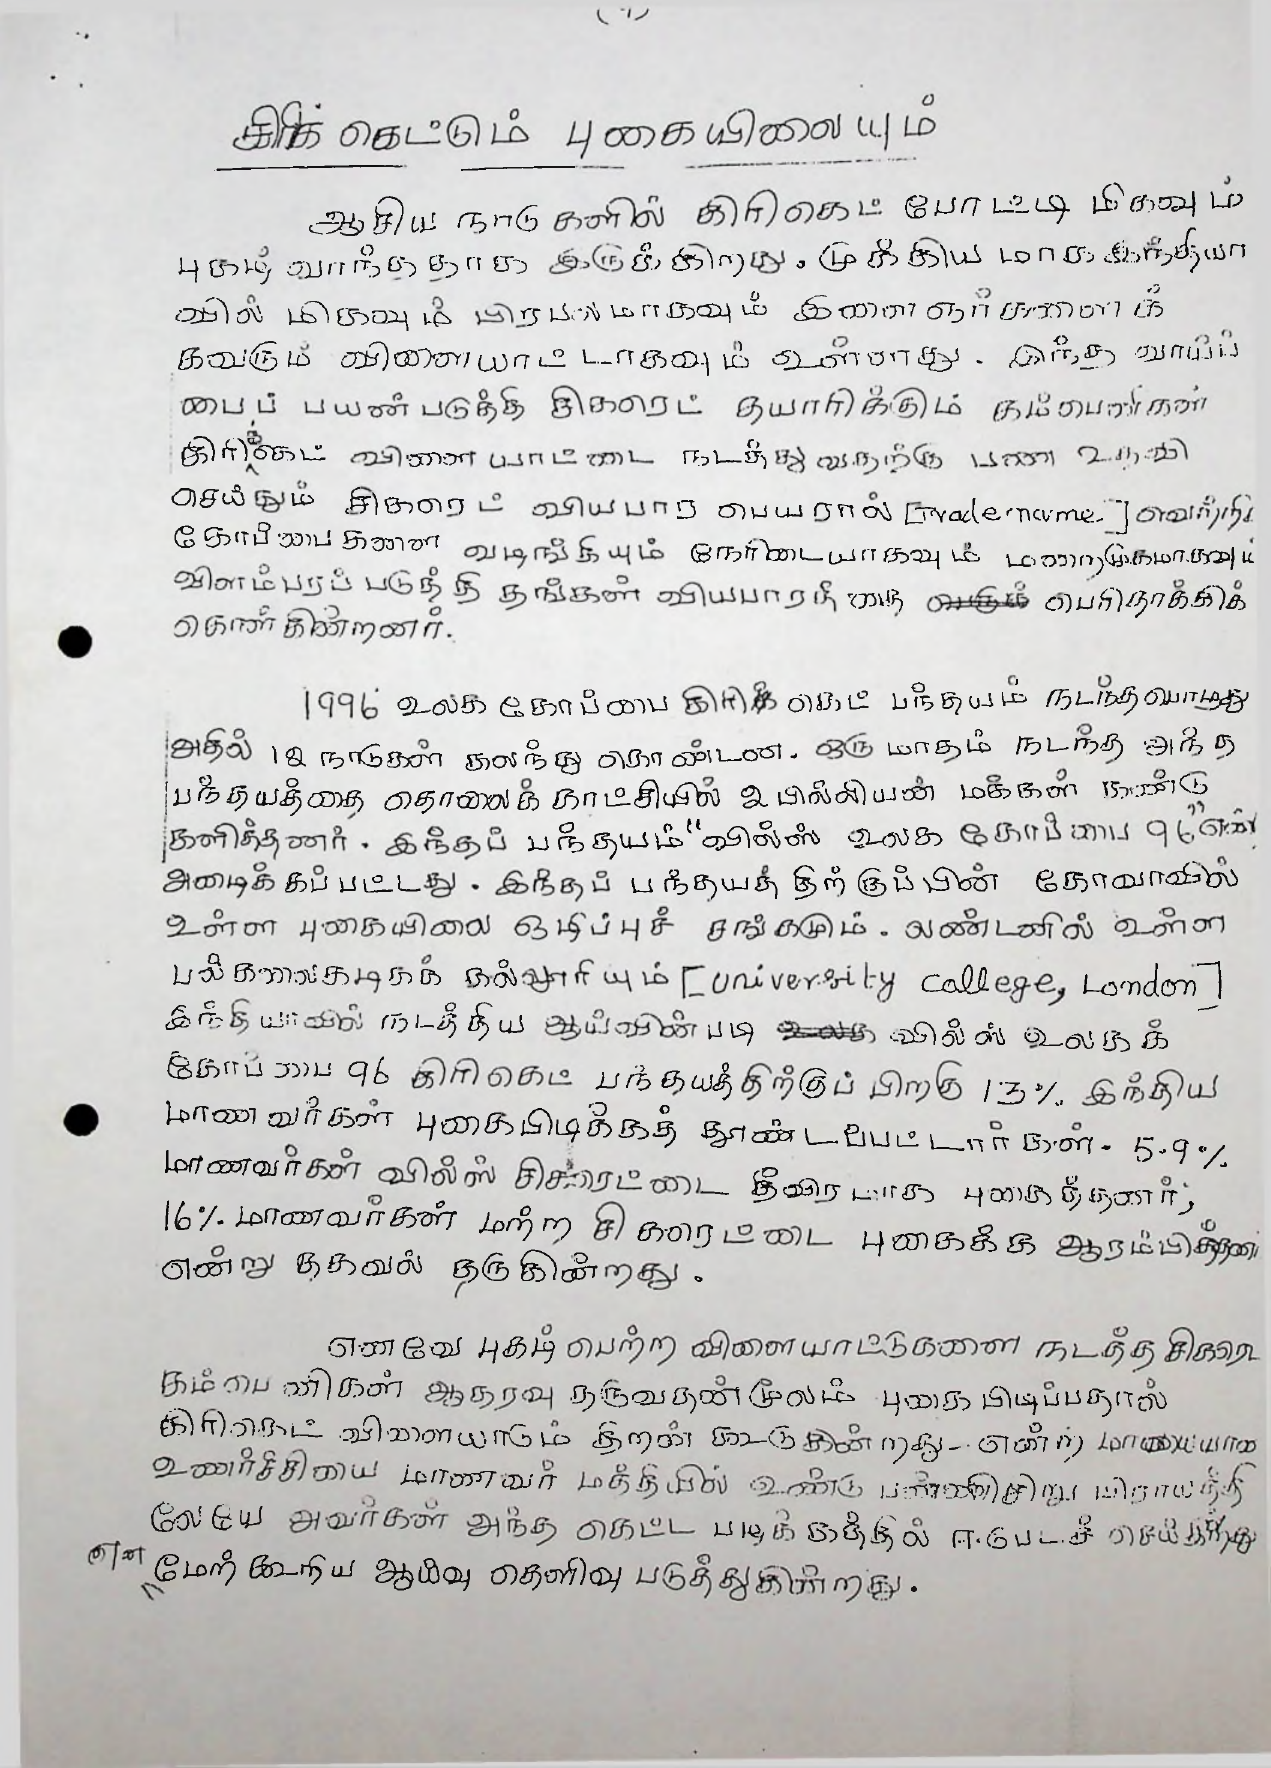 கிரிக்கெட்டும் புகையிலையும்
ஆசிய நாடுகளில் கிரிகெட் போட்டி மிகவும்
புகழ் வாந்ததாக இருக்கிறது. முக்கிய மாக இந்தியா
வில் மிகவும் பிரபலமாகவும் இளைஞர்களைக்
கவரும் விளையாட்டாகவும் உள்ளது. இந்த வாய்ப்
பைப் பயண்படுத்தி சிகரைட் தயாரிக்கும் கம்பெணிகள்
கிரிக்கெட் விளையாட்டை நடத்துவதற்கு பண உதவி
செய்தும் சிகரைட் வியபார பெயரால் [Tradename]
கோப்பைகளை வடிங்கியும் நேரிடையாகவும் மறைமுகமாகவும்
விளம்பரப் படுத்தி தங்கள் வியபாரத்தை பெரிதாக்கிக்
கொண்கின்றனர்.
1996 உலக கோப்பை கிரிக்கெட் பந்தயம் நடந்தபொழுது
அதில் 12 நாடுகள் கலந்து கொண்டன. ஒரு மாதம் நடந்த அந்த
பந்தயத்தை தொலைக்காட்சியில் 2 பில்லியண் மக்கள் கண்டு
களித்தனர். இந்தப் பந்தயம் "வில்ஸ் உலக கோப்பை 96" என
அடைக்கப்பட்டது. இந்தப் பந்தயத்திற்குப்பின் கோவாவில்
உள்ள புகையிலை ஒழிப்புச் சங்கமும். லண்டனில் உள்ள
பல்கலைகழகக் கல்லூரியும் [University College, London]
இந்தியாவில் நடத்திய ஆய்வின்படி வில்ஸ் உலகக்
கோப்பை 96 கிரிகெட் பந்தயத்திற்குப் பிறகு 13% இந்திய
மாணவர்கள் புகைபிடிக்கத் தூண்டப்பட்டார்கள். 5.9%
மாணவர்கள் வில்ஸ் சிகரைட்டை தீவிரமாக புகைத்தனர்;
16% மாணவர்கள் மற்ற சிகரைட்டை புகைக்க ஆரம்பித்தனர்
என்று தகவல் தருகின்றது.
எனவே புகழ்பெற்ற விளையாட்டுகளை நடத்த சிகரெட்
கம்பெணிகள் ஆதரவு தருவதன்மூலம் புகைபிடிப்பதால்
கிரிகெட் விளையாடும் திறன் கூடுகின்றது- என்ற மாயையான
உணர்ச்சியை மாணவர் மத்தியில் உண்டு பண்ணி சிறு பிராயத்தி
லேயே அவர்கள் அந்த கெட்ட படிக்கத்தில் ஈடுபடச் செய்கிறது
என மேற்கூறிய ஆய்வு தெளிவு படுத்துகின்றது.